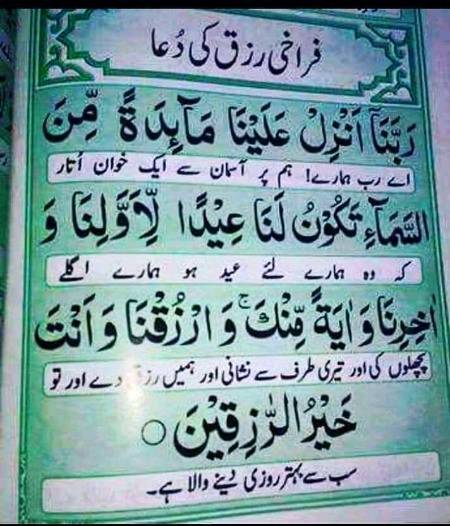 فراخی رزق کی دُعا
رَبَّنَآ اَنْزِلْ عَلَيْنَا مَآئِدَةً مِّنَ
اے رب ہمارے! ہم پر آسمان سے ایک خوان اُتار
السَّمَآءِ تَكُوْنُ لَنَا عِيْدًا لِّاَوَّلِنَا وَ
کہ وہ ہمارے لئے عید ہو ہمارے اگلے
اٰخِرِنَا وَ اٰيَةً مِّنْكَ ۚ وَ ارْزُقْنَا وَ اَنْتَ
پچھلوں کی اور تیری طرف سے نشانی اور ہمیں رزق دے اور تو
خَيْرُ الرّٰزِقِيْنَ ○
سب سے بہتر روزی دینے والا ہے۔